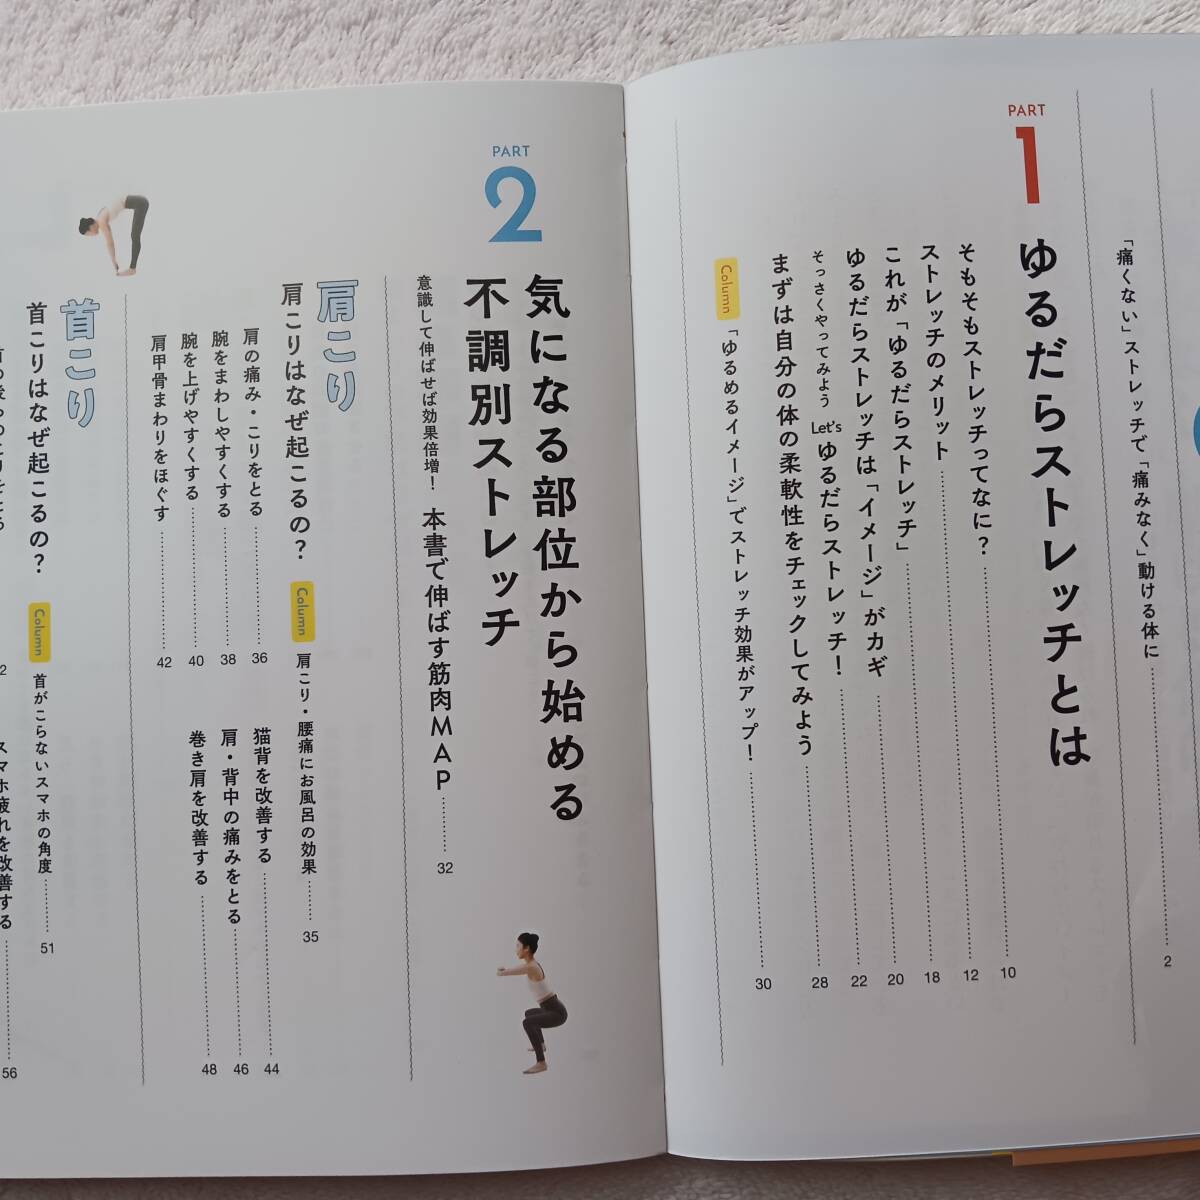 「痛くない」ストレッチで「痛みなく」動ける体に 2
PART
1
ゆるだらストレッチとは
そもそもストレッチってなに? 10
ストレッチのメリット 12
これが「ゆるだらストレッチ」 18
ゆるだらストレッチは「イメージ」がカギ 20
そっさくやってみよう Let's ゆるだらストレッチ! 22
まずは自分の体の柔軟性をチェックしてみよう 28
Column 「ゆるめるイメージ」でストレッチ効果がアップ! 30
PART
2
気になる部位から始める
不調別ストレッチ
意識して伸ばせば効果倍増! 本書で伸ばす筋肉MAP 32
肩こり
肩こりはなぜ起こるの?
Column 肩こり・腰痛にお風呂の効果 35
肩の痛み・こりをとる 36
腕をまわしやすくする 38
腕を上げやすくする 40
肩甲骨まわりをほぐす 42
猫背を改善する 44
肩・背中の痛みをとる 46
巻き肩を改善する 48
首こり
首こりはなぜ起こるの?
Column 首がこらないスマホの角度 51
スマホ疲れを改善する 56